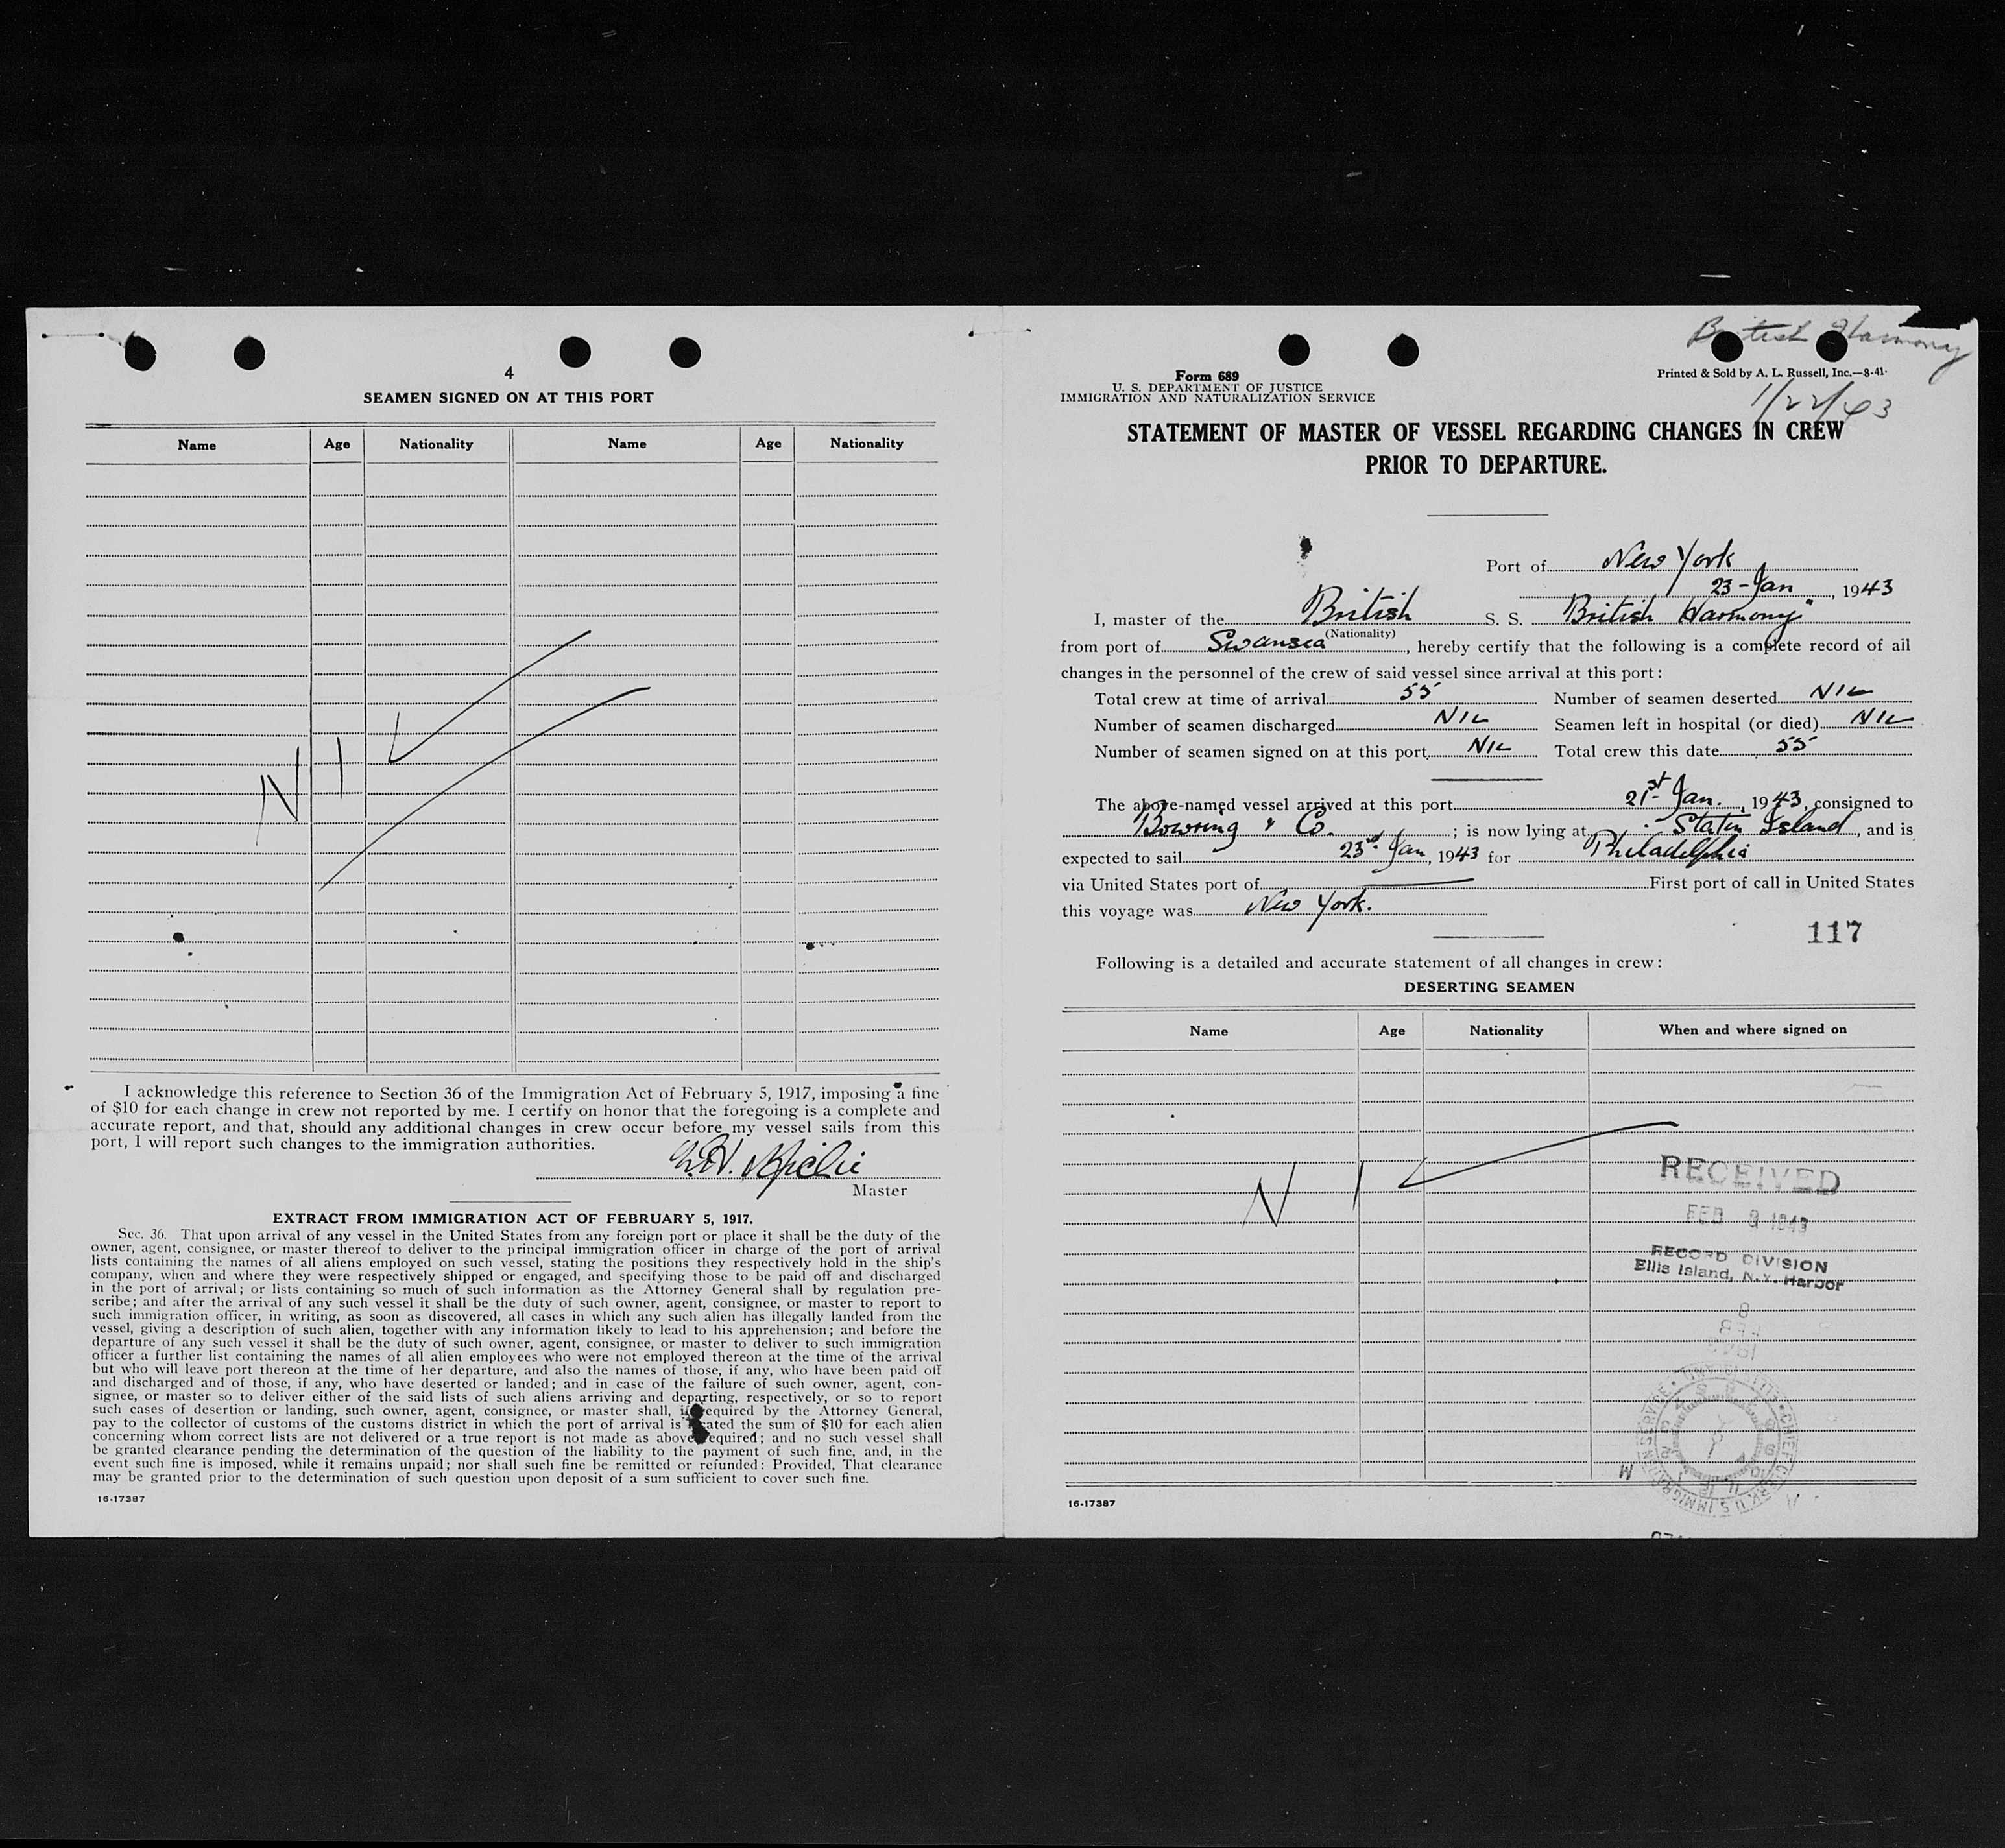 4
SEAMEN SIGNED ON AT THIS PORT
Name Age Nationality Name Age Nationality
NIL
I acknowledge this reference to Section 36 of the Immigration Act of February 5, 1917, imposing a fine
of $10 for each change in crew not reported by me. I certify on honor that the foregoing is a complete and
accurate report, and that, should any additional changes in crew occur before my vessel sails from this
port, I will report such changes to the immigration authorities.
Master
EXTRACT FROM IMMIGRATION ACT OF FEBRUARY 5, 1917.
Sec. 36. That upon arrival of any vessel in the United States from any foreign port or place it shall be the duty of the
owner, agent, consignee, or master thereof to deliver to the principal immigration officer in charge of the port of arrival
lists containing the names of all aliens employed on such vessel, stating the positions they respectively hold in the ship's
company, when and where they were respectively shipped or engaged, and specifying those to be paid off and discharged
in the port of arrival; or lists containing so much of such information as the Attorney General shall by regulation pre-
scribe; and after the arrival of any such vessel it shall be the duty of such owner, agent, consignee, or master to report to
such immigration officer, in writing, as soon as discovered, all cases in which any such alien has illegally landed from the
vessel, giving a description of such alien, together with any information likely to lead to his apprehension; and before the
departure of any such vessel it shall be the duty of such owner, agent, consignee, or master to deliver to such immigration
officer a further list containing the names of all alien employees who were not employed thereon at the time of the arrival
but who will leave port thereon at the time of her departure, and also the names of those, if any, who have been paid off
and discharged and of those, if any, who have deserted or landed; and in case of the failure of such owner, agent, con-
signee, or master so to deliver either of the said lists of such aliens arriving and departing, respectively, or so to report
such cases of desertion or landing, such owner, agent, consignee, or master shall, if required by the Attorney General,
pay to the collector of customs of the customs district in which the port of arrival is located the sum of $10 for each alien
concerning whom correct lists are not delivered or a true report is not made as above required; and no such vessel shall
be granted clearance pending the determination of the question of the liability to the payment of such fine, and, in the
event such fine is imposed, while it remains unpaid; nor shall such fine be remitted or refunded: Provided, That clearance
may be granted prior to the determination of such question upon deposit of a sum sufficient to cover such fine.
16-17387
British Harmony
Form 689
U. S. DEPARTMENT OF JUSTICE
IMMIGRATION AND NATURALIZATION SERVICE
Printed & Sold by A. L. Russell, Inc.—8-41-
1/22/43
STATEMENT OF MASTER OF VESSEL REGARDING CHANGES IN CREW
PRIOR TO DEPARTURE.
Port of New York
23-Jan, 1943
I, master of the British S. S. British Harmony"
(Nationality)
from port of Swansea, hereby certify that the following is a complete record of all
changes in the personnel of the crew of said vessel since arrival at this port:
Total crew at time of arrival 55 Number of seamen deserted NIL
Number of seamen discharged NIL Seamen left in hospital (or died) NIL
Number of seamen signed on at this port NIL Total crew this date 55
The above-named vessel arrived at this port 21st Jan., 1943, consigned to
Bowring & Co.; is now lying at Staten Island, and is
expected to sail 23rd Jan, 1943 for Philadelphia
via United States port of — First port of call in United States
this voyage was New York.
117
Following is a detailed and accurate statement of all changes in crew:
DESERTING SEAMEN
Name Age Nationality When and where signed on
NIL
RECEIVED
FEB 1943
RECORD DIVISION
Ellis Island, N.Y. Harbor
16-17387